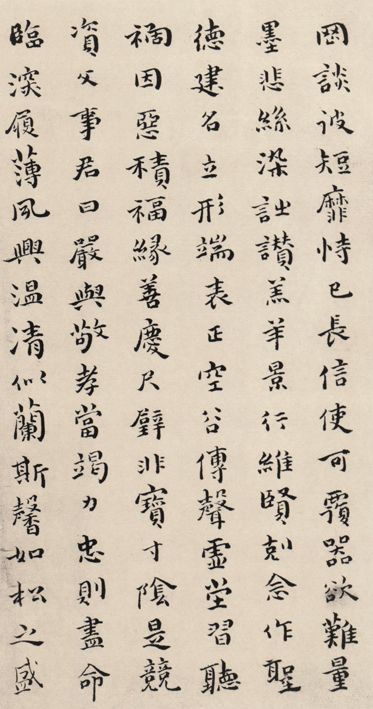 罔談彼短靡恃己長信使可覆器欲難量
墨悲絲染詩讚羔羊景行維賢剋念作聖
德建名立形端表正空谷傳聲虛堂習聽
禍因惡積福緣善慶尺璧非寶寸陰是競
資父事君曰嚴與敬孝當竭力忠則盡命
臨深履薄夙興温凊似蘭斯馨如松之盛